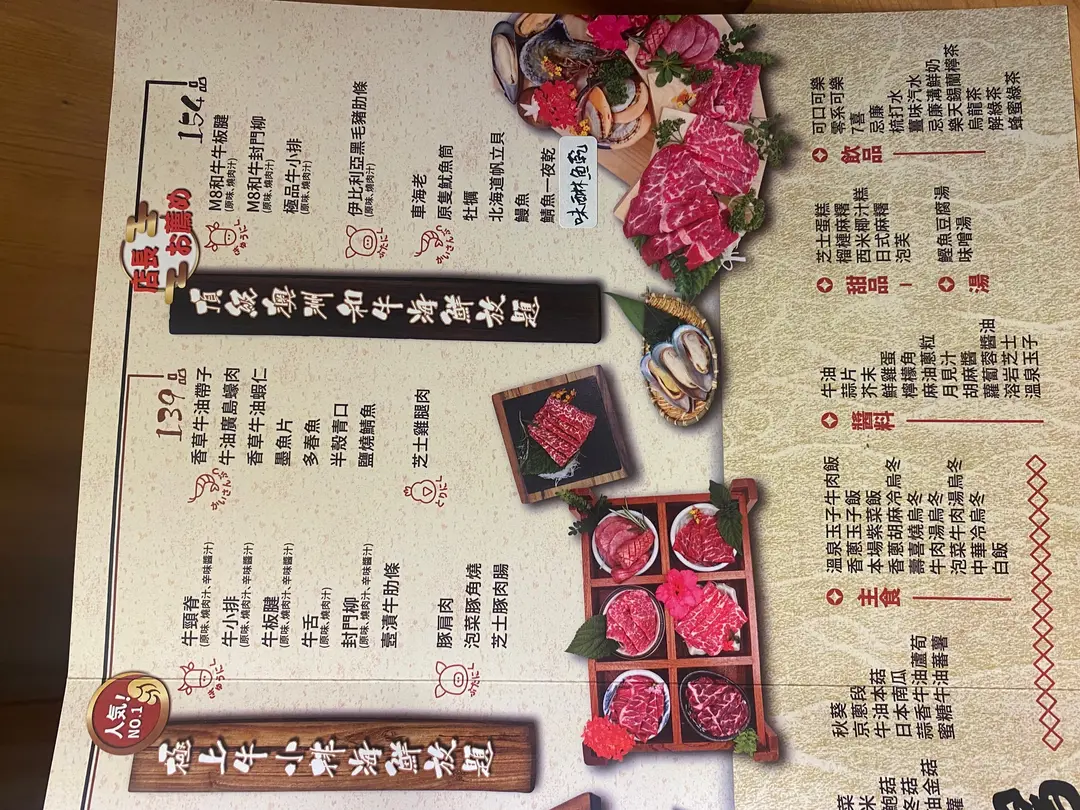 人気!
NO.1
極上牛小排海鮮放題
牛頸脊
(原味、燒肉汁、辛味醬汁)
牛小排
(原味、燒肉汁、辛味醬汁)
牛板腱
(原味、燒肉汁、辛味醬汁)
牛舌
(原味、燒肉汁)
封門柳
(原味、燒肉汁、辛味醬汁)
壺漬牛肋條
豚肩肉
泡菜豚角燒
芝士豚肉腸
139
品
香草牛油帶子
牛油廣島蠔肉
香草牛油蝦仁
墨魚片
多春魚
半殼青口
鹽燒鯖魚
芝士雞腿肉
店長
お薦め
頂級澳洲和牛海鮮放題
154
品
M8和牛牛板腱
(原味、燒肉汁)
M8和牛封門柳
(原味、燒肉汁)
極品牛小排
(原味、燒肉汁)
伊比利亞黑毛豬肋條
(原味、燒肉汁)
車海老
原隻魷魚筒
牡蠣
北海道帆立貝
鰻魚
鯖魚一夜乾
味醂魚乾
秋葵
京蔥段
牛油本菇
日本南瓜
蒜香牛油蘆荀
蜜糖牛油蕃薯
主食
溫泉玉子牛肉飯
香蔥玉子飯
本場紫菜飯
香蔥胡麻冷烏冬
壽喜燒烏冬
牛肉湯烏冬
泡菜牛肉湯烏冬
中華冷烏冬
白飯
醬料
牛油
蒜片
芥末
鮮雞蛋
檸檬角
麻油蔥粒
月見汁
胡麻醬
蘿蔔蓉醬油
溶岩芝士
溫泉玉子
甜品
芝士蛋糕
榴槤麻糬
西米椰汁糕
日式麻糬
泡芙
湯
鰹魚豆腐湯
味噌湯
飲品
可口可樂
零系可樂
7喜
忌廉
梳打水
薑味汽水
忌廉溝鮮奶
樂天錫蘭檸茶
烏龍茶
解綠茶
蜂蜜綠茶